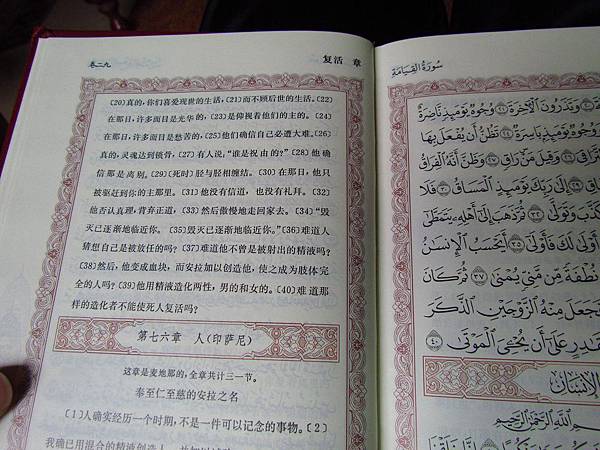 卷二九
复活 章
(20)真的,你们喜爱现世的生活,(21)而不顾后世的生活。(22)
在那日,许多面目是光华的,(23)是仰视着他们的主的。(24)
在那日,许多面目是愁苦的,(25)他们确信自己必遭大难。(26)
真的,灵魂达到锁骨,(27)有人说,“谁是祝由的?”(28)他确
信那是离别。(29)(死时)胫与胫相缠结。(30)在那日,他只
被驱赶到你的主那里。(31)他没有信道,也没有礼拜。(32)
他否认真理,背弃正道,(33)然后傲慢地走回家去。(34)“毁
灭已逐渐地临近你。(35)毁灭已逐渐地临近你。”(36)难道人
猜想自己是被放任的吗?(37)难道他不曾是被射出的精液吗?
(38)然后,他变成血块,而安拉加以创造他,使之成为肢体完
全的人吗?(39)他用精液造化两性,男的和女的。(40)难道那
样的造化者不能使死人复活吗?
第七六章 人(印萨尼)
这章是麦地那的,全章共计三一节。
奉至仁至慈的安拉之名
(1)人确实经历一个时期,不是一件可以记念的事物。(2)
我确已用混合的精液创造人
سُورَةُ القِيَامَةِ
وَتَذَرُونَ الْآخِرَةَ ٢١ وُجُوهٌ يَوْمَئِذٍ نَاضِرَةٌ
وَوُجُوهٌ يَوْمَئِذٍ بَاسِرَةٌ ٢٤ تَظُنُّ أَنْ يُفْعَلَ بِهَا
وَقِيلَ مَنْ رَاقٍ ٢٧ وَظَنَّ أَنَّهُ الْفِرَاقُ
إِلَى رَبِّكَ يَوْمَئِذٍ الْمَسَاقُ ٣٠ فَلَا
كَذَّبَ وَتَوَلَّى ٣٢ ثُمَّ ذَهَبَ إِلَى أَهْلِهِ يَتَمَطَّى
أَوْلَى لَكَ فَأَوْلَى ٣٥ أَيَحْسَبُ الْإِنْسَانُ
نُطْفَةً مِنْ مَنِيٍّ يُمْنَى ٣٧ ثُمَّ كَانَ
فَجَعَلَ مِنْهُ الزَّوْجَيْنِ الذَّكَرَ
بِقَادِرٍ عَلَى أَنْ يُحْيِيَ الْمَوْتَى ٤٠
الإِنسَانِ
بِسْمِ اللَّهِ الرَّحْمَٰنِ الرَّحِيمِ